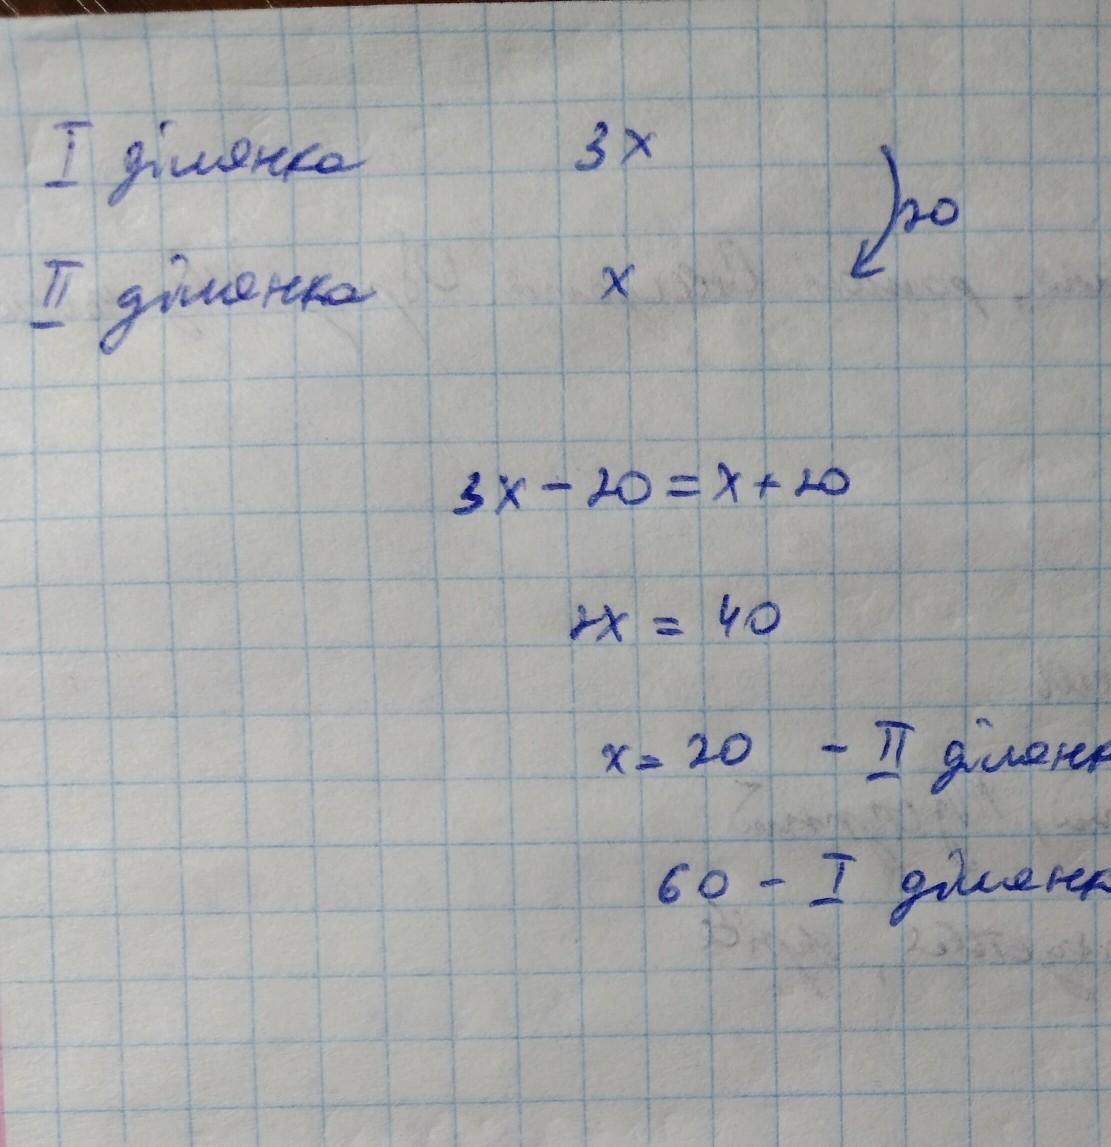 I ділянка 3x
20
II ділянка x
3x - 20 = x + 20
2x = 40
x = 20 - II ділянк
60 - I ділянк